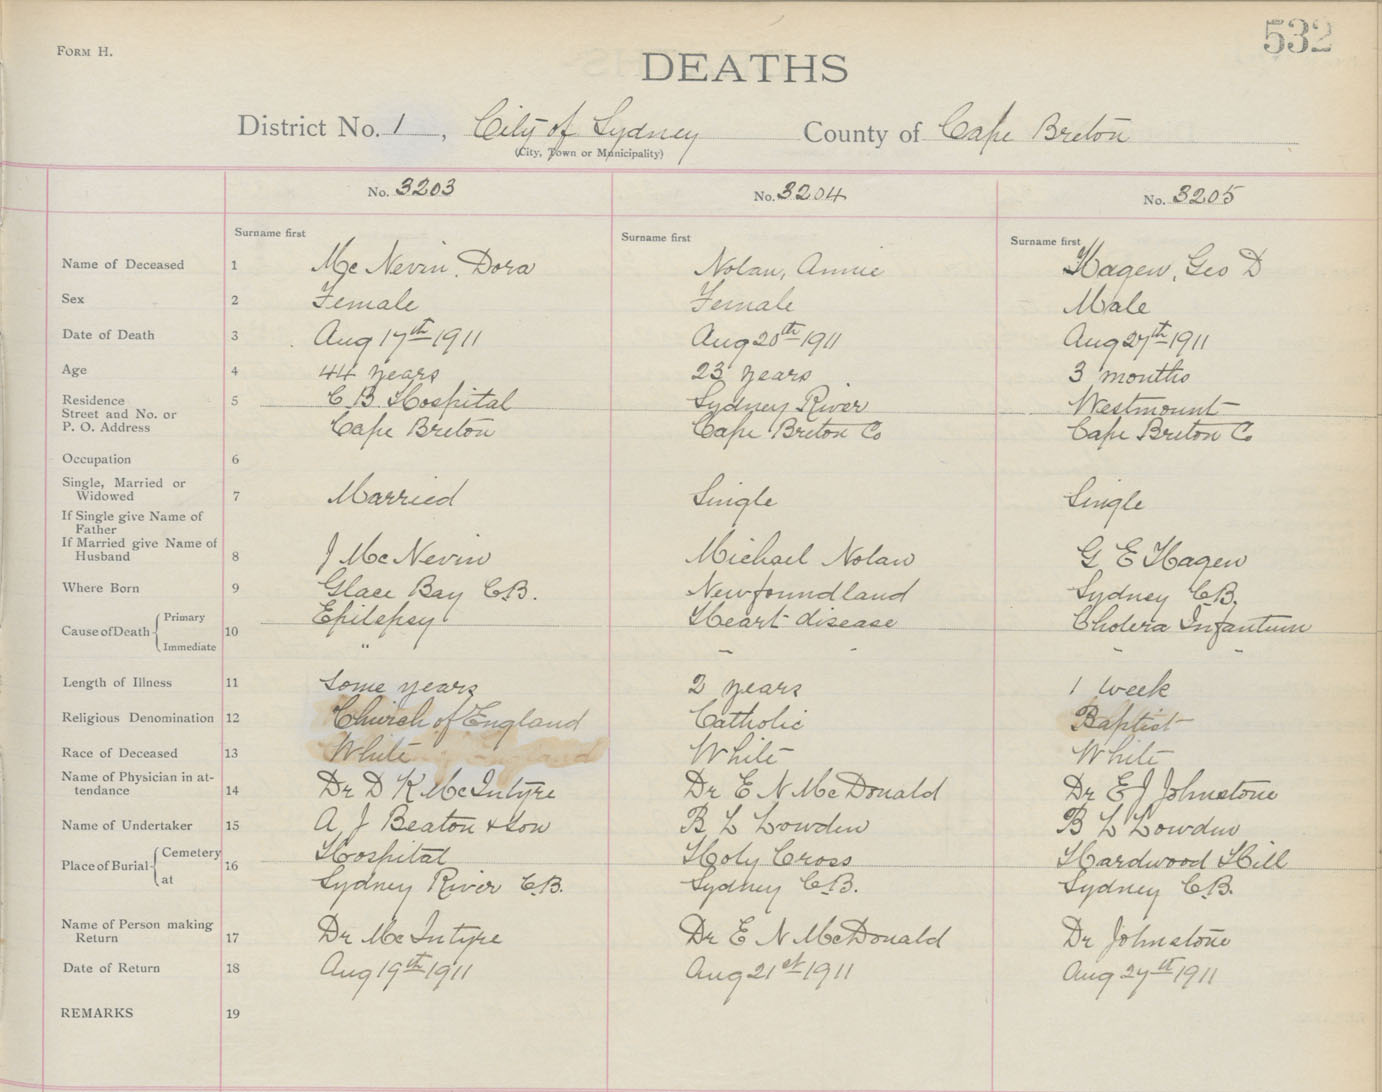 532
FORM H.
DEATHS
District No. 1, City of Sydney County of Cape Breton
(City, Town or Municipality)
No. 3203 No. 3204 No. 3205
Surname first Surname first Surname first
Name of Deceased 1 Mc Nevin, Dora Nolan, Annie Hagen, Geo D
Sex 2 Female Female Male
Date of Death 3 Aug 17th 1911 Aug 20th 1911 Aug 27th 1911
Age 4 44 years 23 years 3 months
Residence 5 C.B. Hospital Sydney River Westmount
Street and No. or
P. O. Address Cape Breton Cape Breton Co Cape Breton Co
Occupation 6
Single, Married or
Widowed 7 Married Single Single
If Single give Name of
Father
If Married give Name of
Husband 8 J McNevin Michael Nolan G E Hagen
Where Born 9 Glace Bay C.B. Newfoundland Sydney C.B.
Cause of Death 10 Primary Epilepsy Heart disease Cholera Infantum
Immediate " " " " "
Length of Illness 11 Some years 2 years 1 week
Religious Denomination 12 Church of England Catholic Baptist
Race of Deceased 13 White White White
Name of Physician in at-
tendance 14 Dr D K McIntyre Dr E N McDonald Dr E J Johnstone
Name of Undertaker 15 A J Beaton & Son B L Lowden B L Lowden
Place of Burial 16 Cemetery Hospital Holy Cross Hardwood Hill
at Sydney River C.B. Sydney C.B. Sydney C.B.
Name of Person making
Return 17 Dr McIntyre Dr E N McDonald Dr Johnstone
Date of Return 18 Aug 19th 1911 Aug 21st 1911 Aug 27th 1911
REMARKS 19